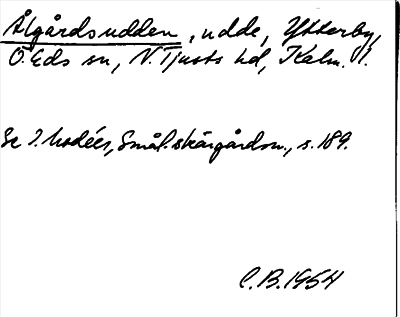 Ålgårdsudden, udde, Ytterby,
Ö. Eds sn, N. Tjusts hd, Kalm. l.
Se I. Modéer, Smål. skärgårdsn., s. 189.
C.B. 1954